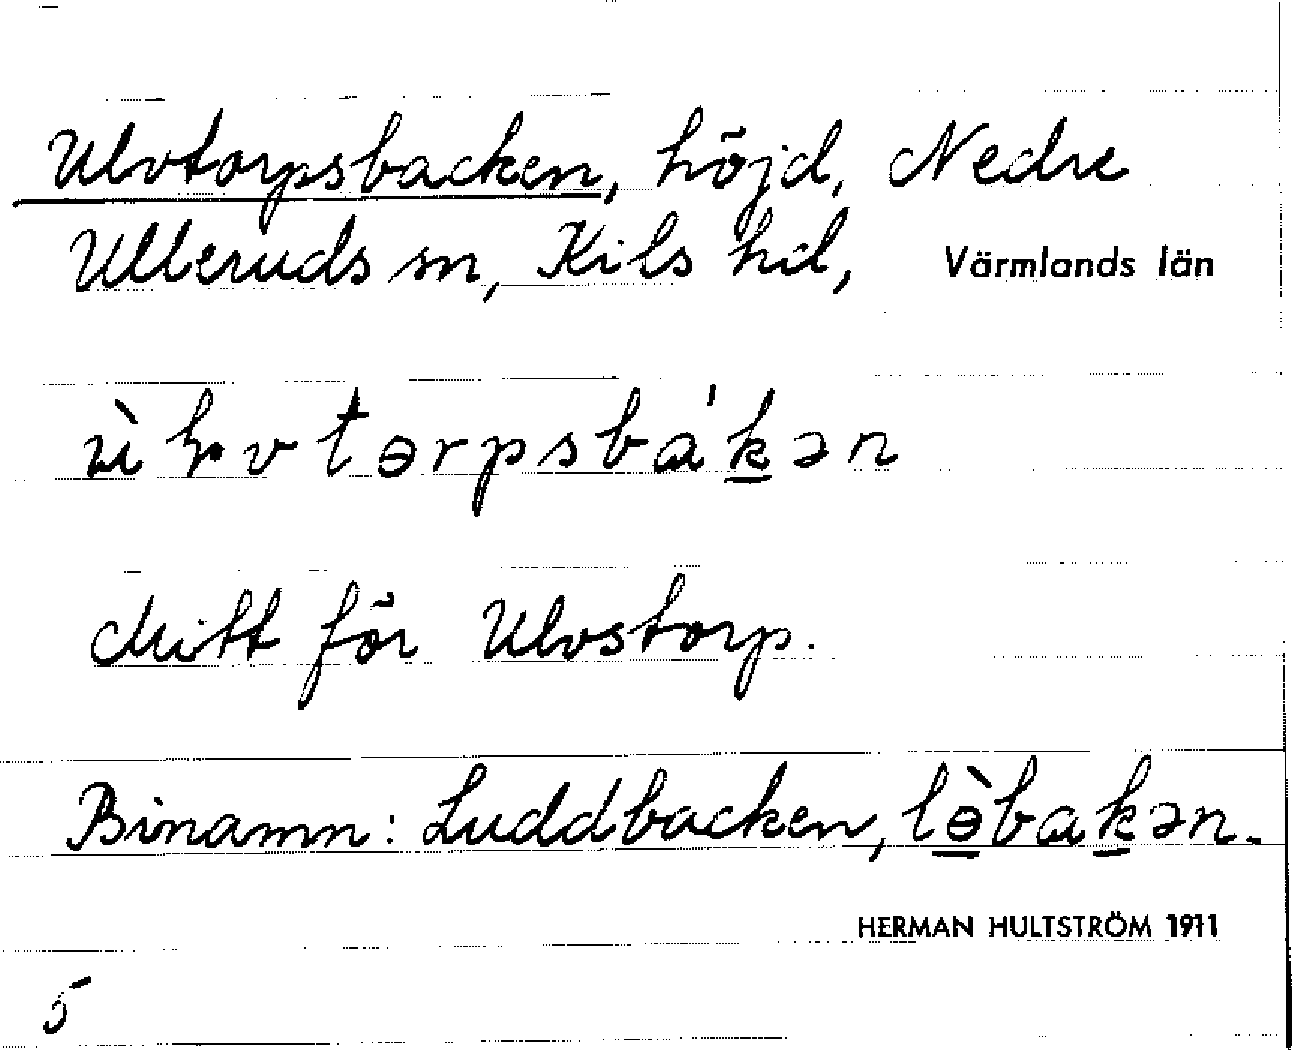 Ulvtorpsbacken, höjd, Nedre
Ulleruds sn, Kils hd, Värmlands län
Mitt för Ulvstorp.
Binamn: Luddbacken, lɵ̀bakən.
HERMAN HULTSTRÖM 1911
5